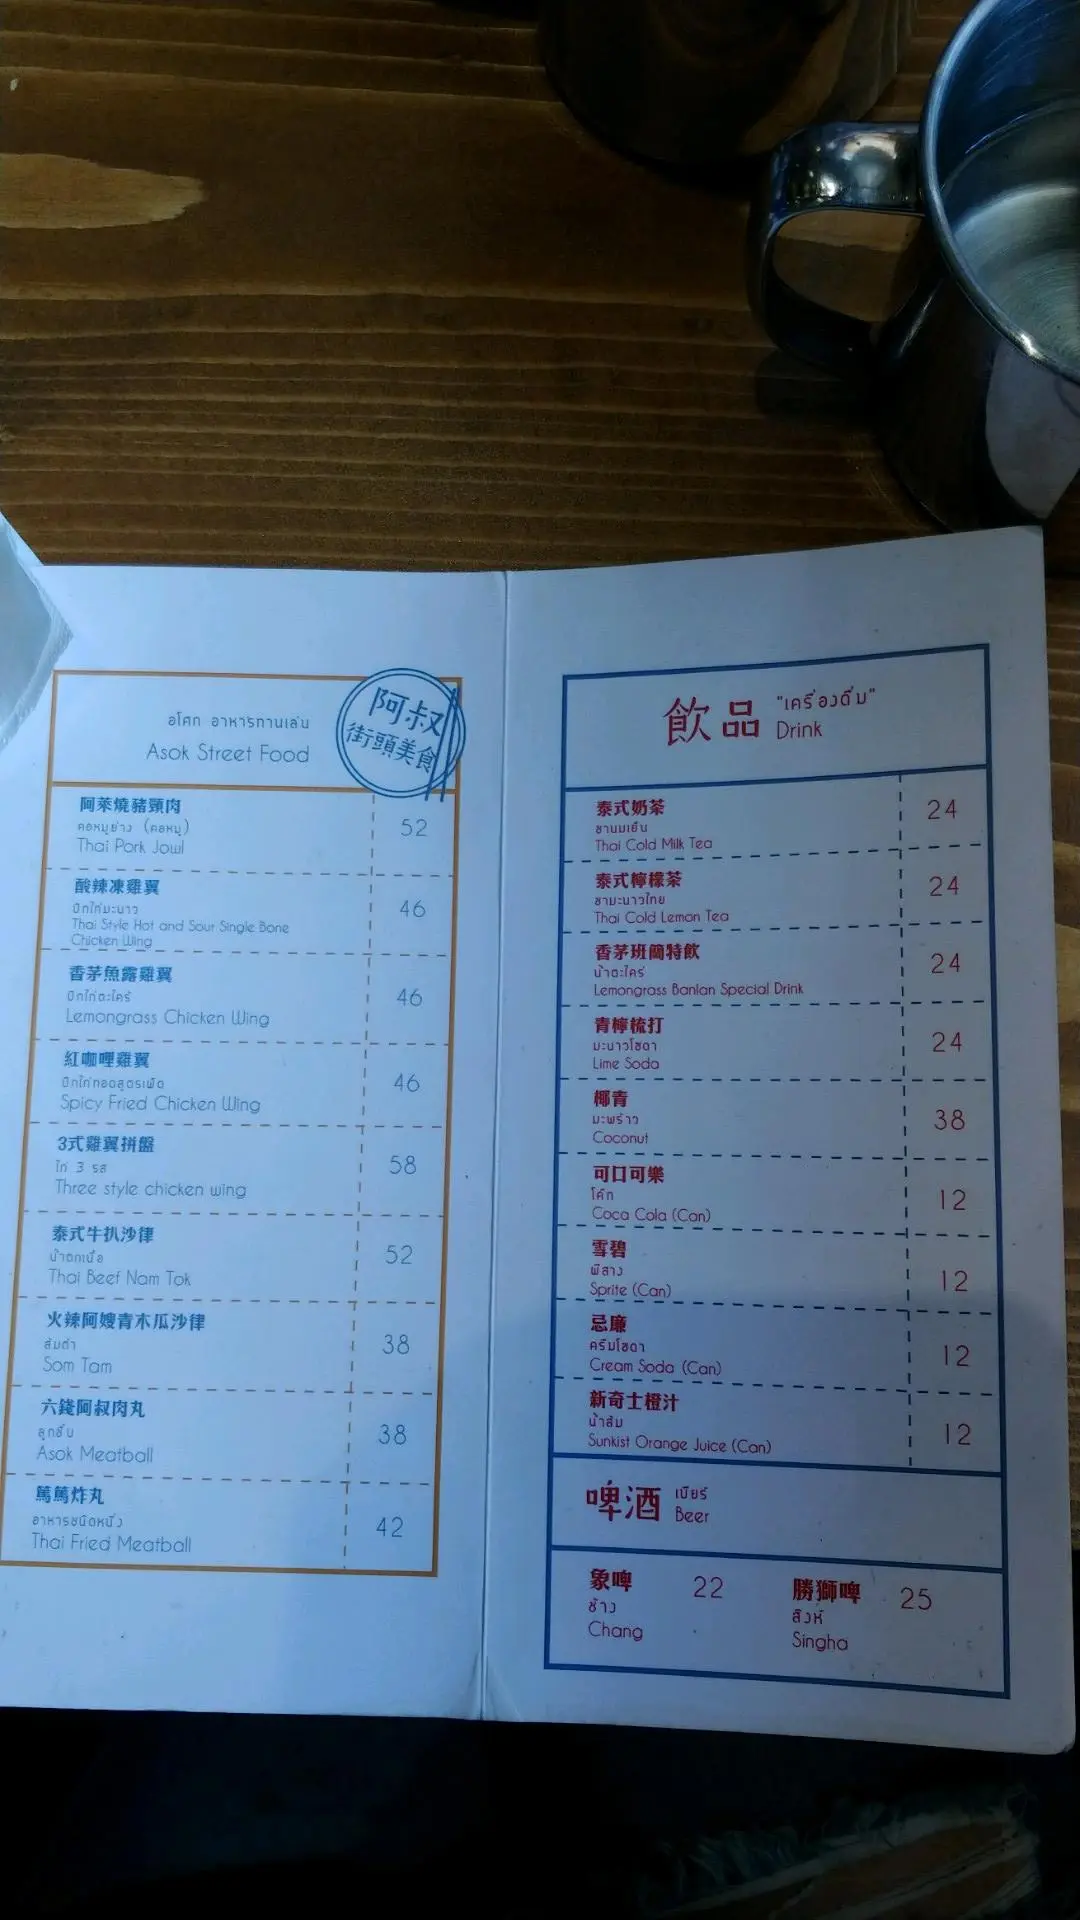 อโศก อาหารทานเล่น
Asok Street Food
阿叔
街頭美食
阿萊燒豬頸肉
คอหมูย่าง (คอหมู)
Thai Pork Jowl
52
酸辣凍雞翼
ปีกไก่มะนาว
Thai Style Hot and Sour Single Bone
Chicken Wing
46
香茅魚露雞翼
ปีกไก่ตะไคร้
Lemongrass Chicken Wing
46
紅咖喱雞翼
ปีกไก่ทอดสูตรเผ็ด
Spicy Fried Chicken Wing
46
3式雞翼拼盤
ไก่ 3 รส
Three style chicken wing
58
泰式牛扒沙律
น้ำตกเนื้อ
Thai Beef Nam Tok
52
火辣阿嫂青木瓜沙律
ส้มตำ
Som Tam
38
六錢阿叔肉丸
ลูกชิ้น
Asok Meatball
38
篤篤炸丸
อาหารชนิดหนึ่ง
Thai Fried Meatball
42
飲品
"เครื่องดื่ม"
Drink
泰式奶茶
ชานมเย็น
Thai Cold Milk Tea
24
泰式檸檬茶
ชามะนาวไทย
Thai Cold Lemon Tea
24
香茅班蘭特飲
น้ำตะไคร้
Lemongrass Banlan Special Drink
24
青檸梳打
มะนาวโซดา
Lime Soda
24
椰青
มะพร้าว
Coconut
38
可口可樂
โค้ก
Coca Cola (Can)
12
雪碧
พีสาง
Sprite (Can)
12
忌廉
ครีมโซดา
Cream Soda (Can)
12
新奇士橙汁
น้ำส้ม
Sunkist Orange Juice (Can)
12
啤酒
เบียร์
Beer
象啤
ช้าง
Chang
22
勝獅啤
สิงห์
Singha
25